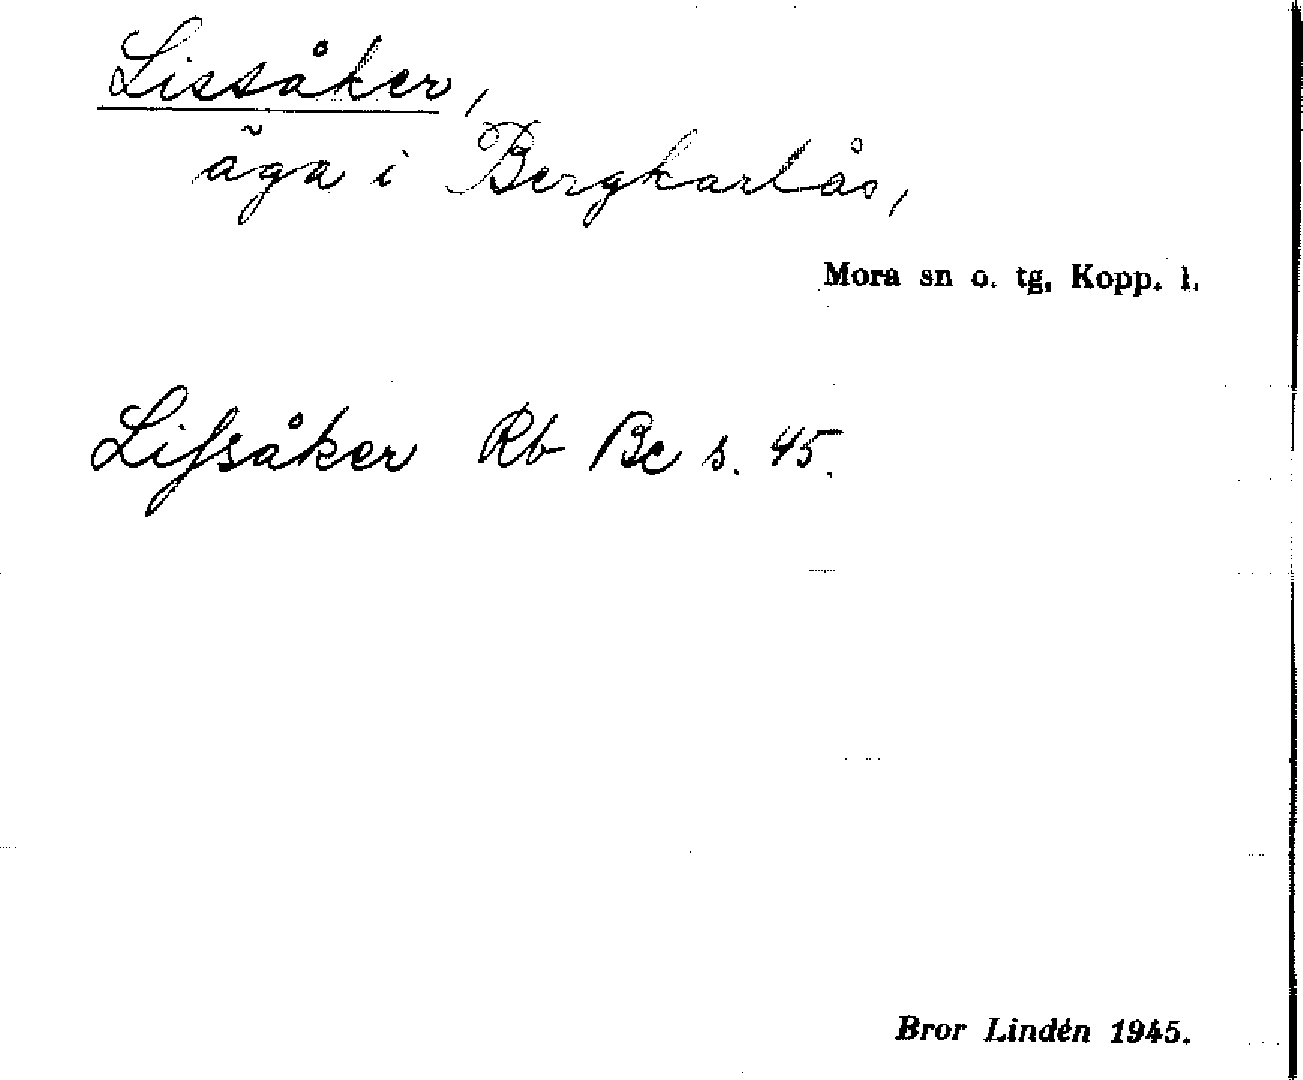 Lissåker,
äga i Bergkarlås,
Mora sn o. tg, Kopp. l.
Liſsåker Rb Bc s. 45.
Bror Lindén 1945.